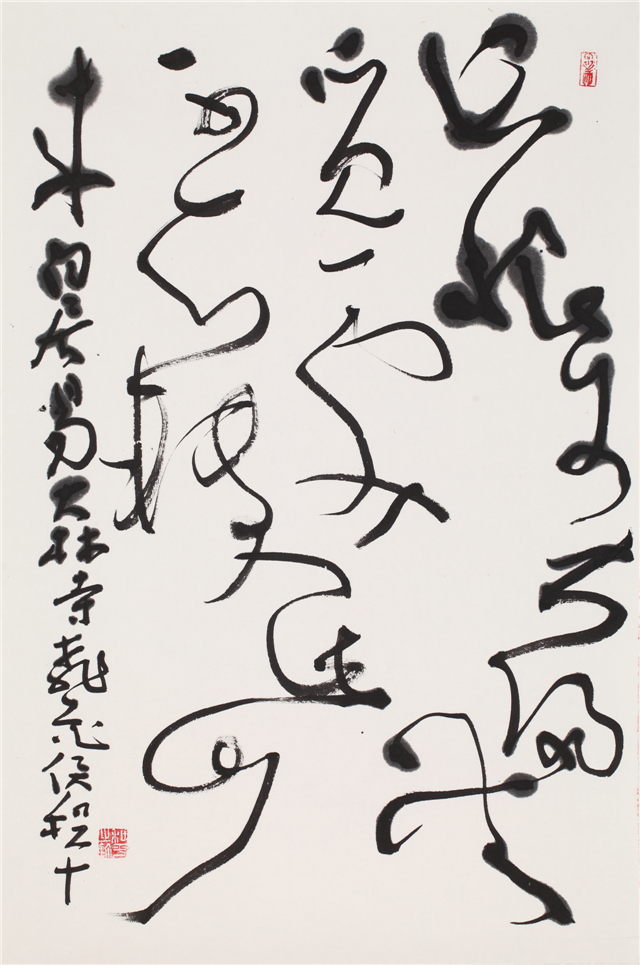 长恨春归无
觅处
不知转入此中
来 白居易大林寺桃花 侯